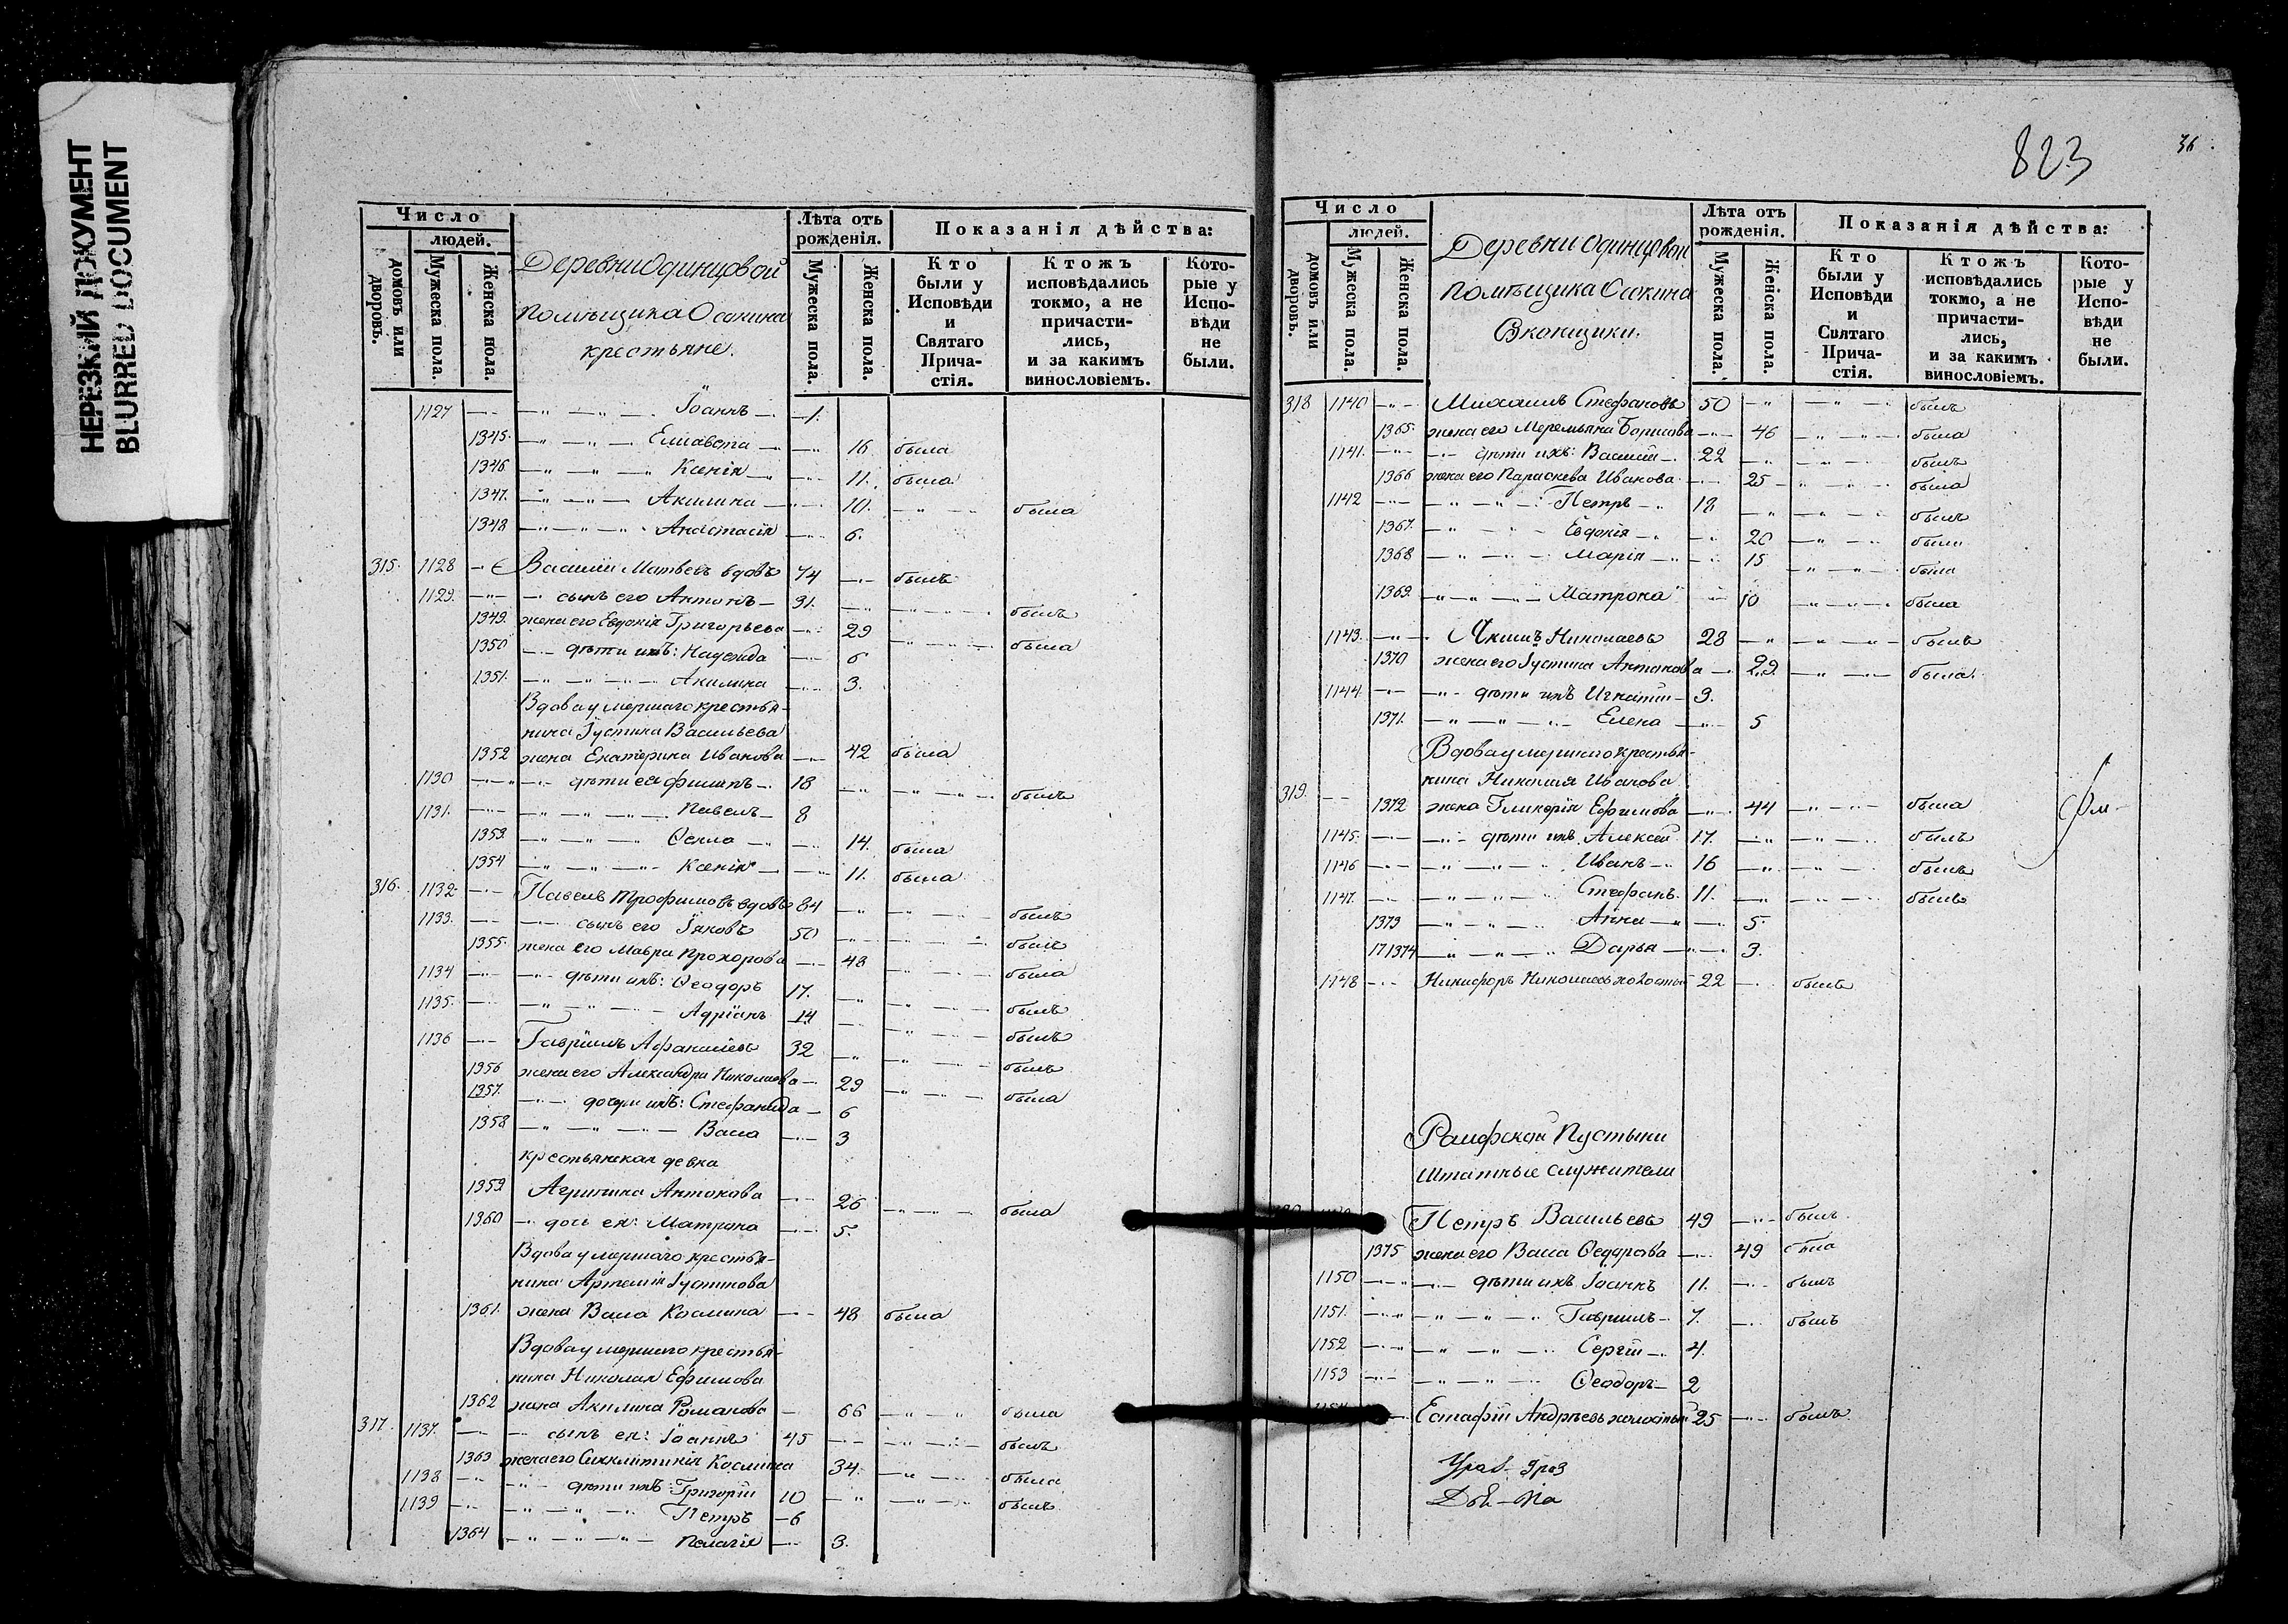 НЕРЕЗКИЙ ДОКУМЕНТ
BLURRED DOCUMENT
Число
людей.
домовъ или дворовъ.
Мужеска пола.
Женска пола.
Деревни Одинцовой
помѣщика Осокина
крестьяне.
Лѣта отъ рожденія.
Мужеска пола.
Женска пола.
Показанія дѣйства:
Кто были у Исповѣди и Святаго Прича-стія.
Ктожъ исповѣдались токмо, а не причасти-лись, и за какимъ винословіемъ.
Кото-рые у Испо-вѣди не были.
1127 Іоаннъ 1.
1345. Елисавета 16 была
1346 Ксенія 11. была
1347. Акилина 10. была
1348 Анастасія 6.
315. 1128 Василій Матвѣевъ вдовъ 74 былъ
1129. сынъ его Антонъ 31. былъ
1349. жена его Евдокія Григорьева 29 была
1350 дѣти ихъ: Надежда 6
1351. Акилина 3.
Вдова умершаго крестья-
нина Іустина Васильева
1352 жена Екатерина Иванова 42 была
1130 дѣти ея Филипъ 18 былъ
1131. Павелъ 8
1353. Ѳекла 14. была
1354 Ксенія 11. была
316. 1132. Павелъ Трофимовъ вдовъ 84 былъ
1133. сынъ его Іаковъ 50 былъ
1355. жена его Мавра Прохорова 48 была
1134 дѣти ихъ: Ѳеодоръ 17. былъ
1135. Адріанъ 14 былъ
1136 Гавріилъ Афанасіевъ 32 былъ
1356 жена его Александра Николаева 29 была
1357. дочери ихъ: Стефанида 6
1358 Васса 3
крестьянская девка
1359 Агрипина Антонова 26 была
1360 дочь ея: Матрона 5.
Вдова умершаго крестья-
нина Артемія Іустинова
1361. жена Васса Космина 48 была
Вдова умершаго крестья-
нина Николая Ефимова
1362 жена Акилина Романова 66 была
317. 1137. сынъ ея: Іоаннъ 45 былъ
1363 жена его Синклитикія Космина 34. была
1138 дѣти ихъ: Григорій 10 былъ
1139 Петръ 6
1364 Пелагія 3.
823
36
Число
людей.
домовъ или дворовъ.
Мужеска пола.
Женска пола.
Деревни Одинцовой
помѣщика Осокина
Лѣта отъ рожденія.
Мужеска пола.
Женска пола.
Показанія дѣйства:
Кто были у Исповѣди и Святаго Прича-стія.
Ктожъ исповѣдались токмо, а не причасти-лись, и за какимъ винословіемъ.
Кото-рые у Испо-вѣди не были.
318 1140 Михаилъ Стефановъ 50 былъ
1365. жена его Борисова 46 была
1141. дѣти ихъ: Василій 22 былъ
1366 жена его Параскева Иванова 25 была
1142 Петръ 18 былъ
1367. Евдокія 20 была
1368 Марія 15 была
1369. Матрона 10 была
1143. Акимъ Николаевъ 28 былъ
1370 жена его Іустина Антонова 29. была.
1144. дѣти ихъ Игнатій 3.
1371. Елена 5
Вдова умершаго крестья-
нина Николая Иванова
319. 1372 жена Гликерія Ефимова 44 была
1145. дѣти ихъ Алексѣй 17. былъ
1146 Иванъ 16 былъ
1147. Стефанъ. 11. былъ
1373 Анна 5.
1374 Дарья 3.
1148 Никифоръ Николаевъ холостый 22 былъ
Раифской Пустыни
Штатные служители
Петръ Васильевъ 49 былъ
1375 жена его Васса Ѳедорова 49 была
1150 дѣти ихъ Іоаннъ 11. былъ
1151. Гавріилъ 7. былъ
1152 Сергій 4.
1153 Ѳеодоръ 2
Естафій Андрѣевъ холостый 25 былъ